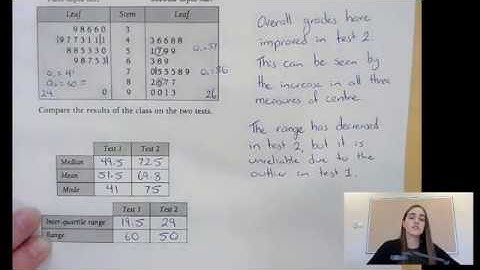 Leaf Stem Leaf
9 8 6 6 0 3
4 3 6 6 8 8
8 8 5 3 3 0 5 1 7 9 9
9 8 7 5 3 6 3 8 9
7 0 5 5 5 8 9
8
24 0 9 0 0 1 3 26
Compare the results of the class on the two tests.
Test 1 Test 2
Median 49.5 72.5
Mean 51.5 69.8
Mode 41 75
Test 1 Test 2
Inter-quartile range 19.5 29
Range 60 50
Overall grades have
improved in test 2.
This can be seen by
the increase in all three
measures of centre.
The range has decreased
in test 2, but it is
unreliable due to the
outlier in test 1.